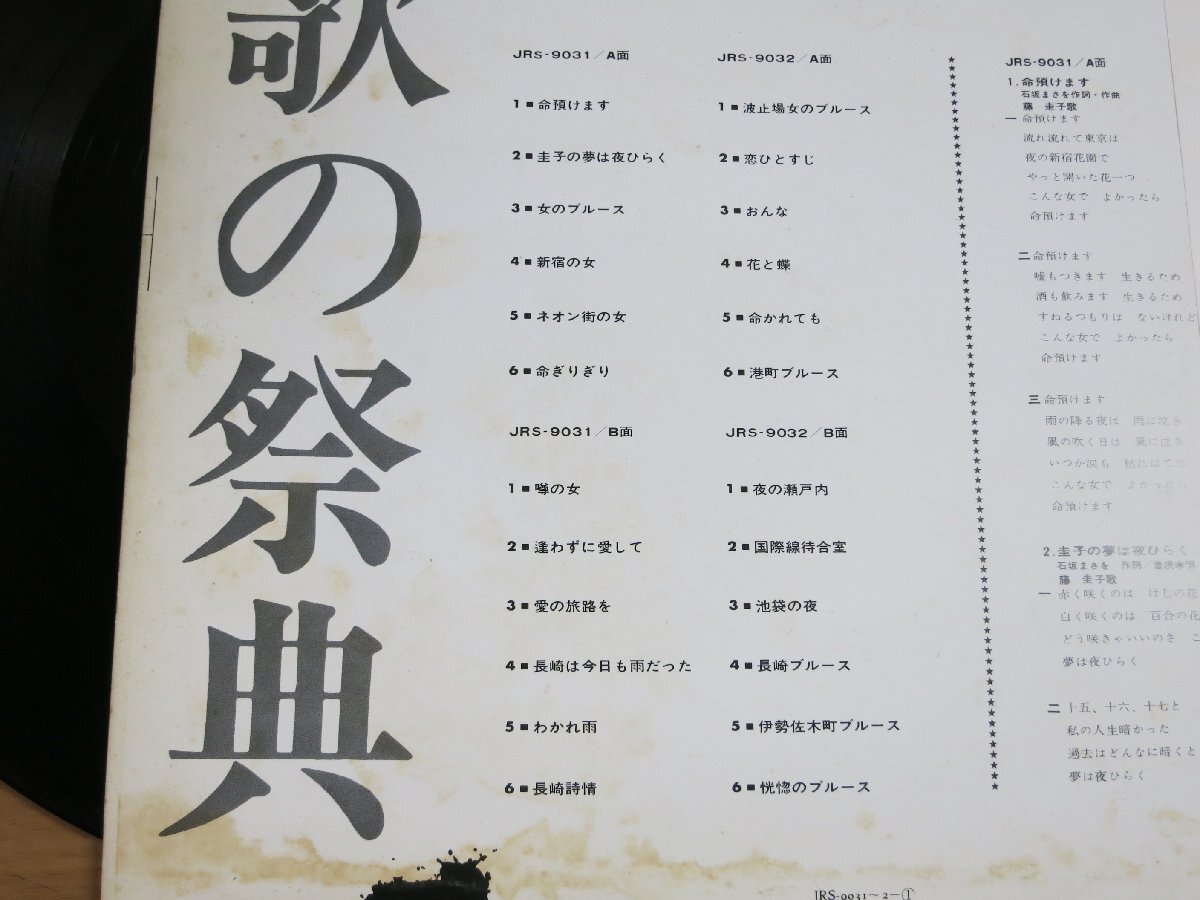 歌の祭典
JRS-9031/A面
1■命預けます
2■圭子の夢は夜ひらく
3■女のブルース
4■新宿の女
5■ネオン街の女
6■命ぎりぎり
JRS-9031/B面
1■噂の女
2■逢わずに愛して
3■愛の旅路を
4■長崎は今日も雨だった
5■わかれ雨
6■長崎詩情
JRS-9032/A面
1■波止場女のブルース
2■恋ひとすじ
3■おんな
4■花と蝶
5■命かれても
6■港町ブルース
JRS-9032/B面
1■夜の瀬戸内
2■国際線待合室
3■池袋の夜
4■長崎ブルース
5■伊勢佐木町ブルース
6■恍惚のブルース
JRS-9031/A面
1.命預けます
石坂まさを作詞・作曲
藤 圭子歌
一 命預けます
流れ流れて東京は
夜の新宿花園で
やっと開いた花一つ
こんな女で よかったら
命預けます
二 命預けます
嘘もつきます 生きるため
酒も飲みます 生きるため
すねるつもりは ないけれど
こんな女で よかったら
命預けます
三 命預けます
雨の降る夜は 雨に泣き
風の吹く日は 風に泣き
いつか涙も 枯れはてた
こんな女で よかったら
命預けます
2.圭子の夢は夜ひらく
石坂まさを 作詞/曽根幸明
藤 圭子歌
一 赤く咲くのは けしの花
白く咲くのは 百合の花
どう咲きゃいいのさ こ
夢は夜ひらく
二 十五、十六、十七と
私の人生暗かった
過去はどんなに暗くと
夢は夜ひらく
JRS-9031~2-①